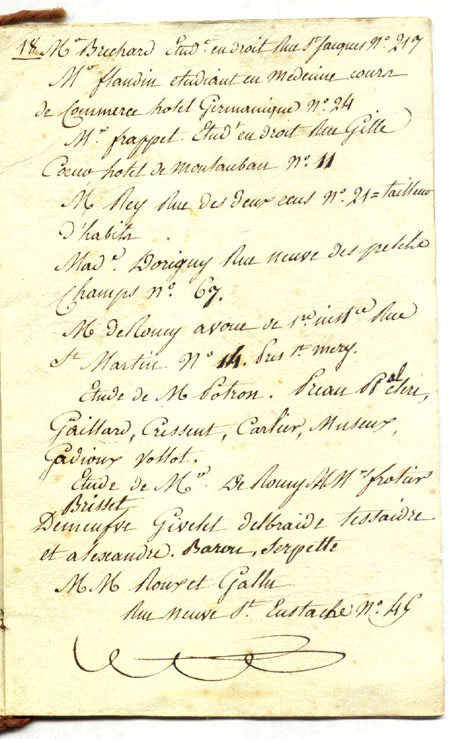 18. Mr. Brichard Etudt. en droit Rue St. Jaques No. 217
Mr. flandin etudiant en Medecine cours
de Commerce hotel Germanique No. 24
Mr. frappet Etudt. en droit Rue Gille
Coeur hotel de Montauban No. 11
M Rey Rue des deux ecus No. 21 = tailleur
d'habits
Made. Dorigny Rue neuve des petits
Champs No. 67.
M de Romy avoué de 1re instce Rue
St Martin No 14. Pres St. mery.
Etude de M Potron. Preau
Gaillard, Cressent, Carlier, Museux,
Gadioux Vollot.
Etude de Mr. De Romy MMrs frotier
Brisset
Demeufve Givelet delbraide tessaidre
et alexandre. Barou, Serpette
M M Roux et Gallu
Rue neuve St. Eustache No. 45